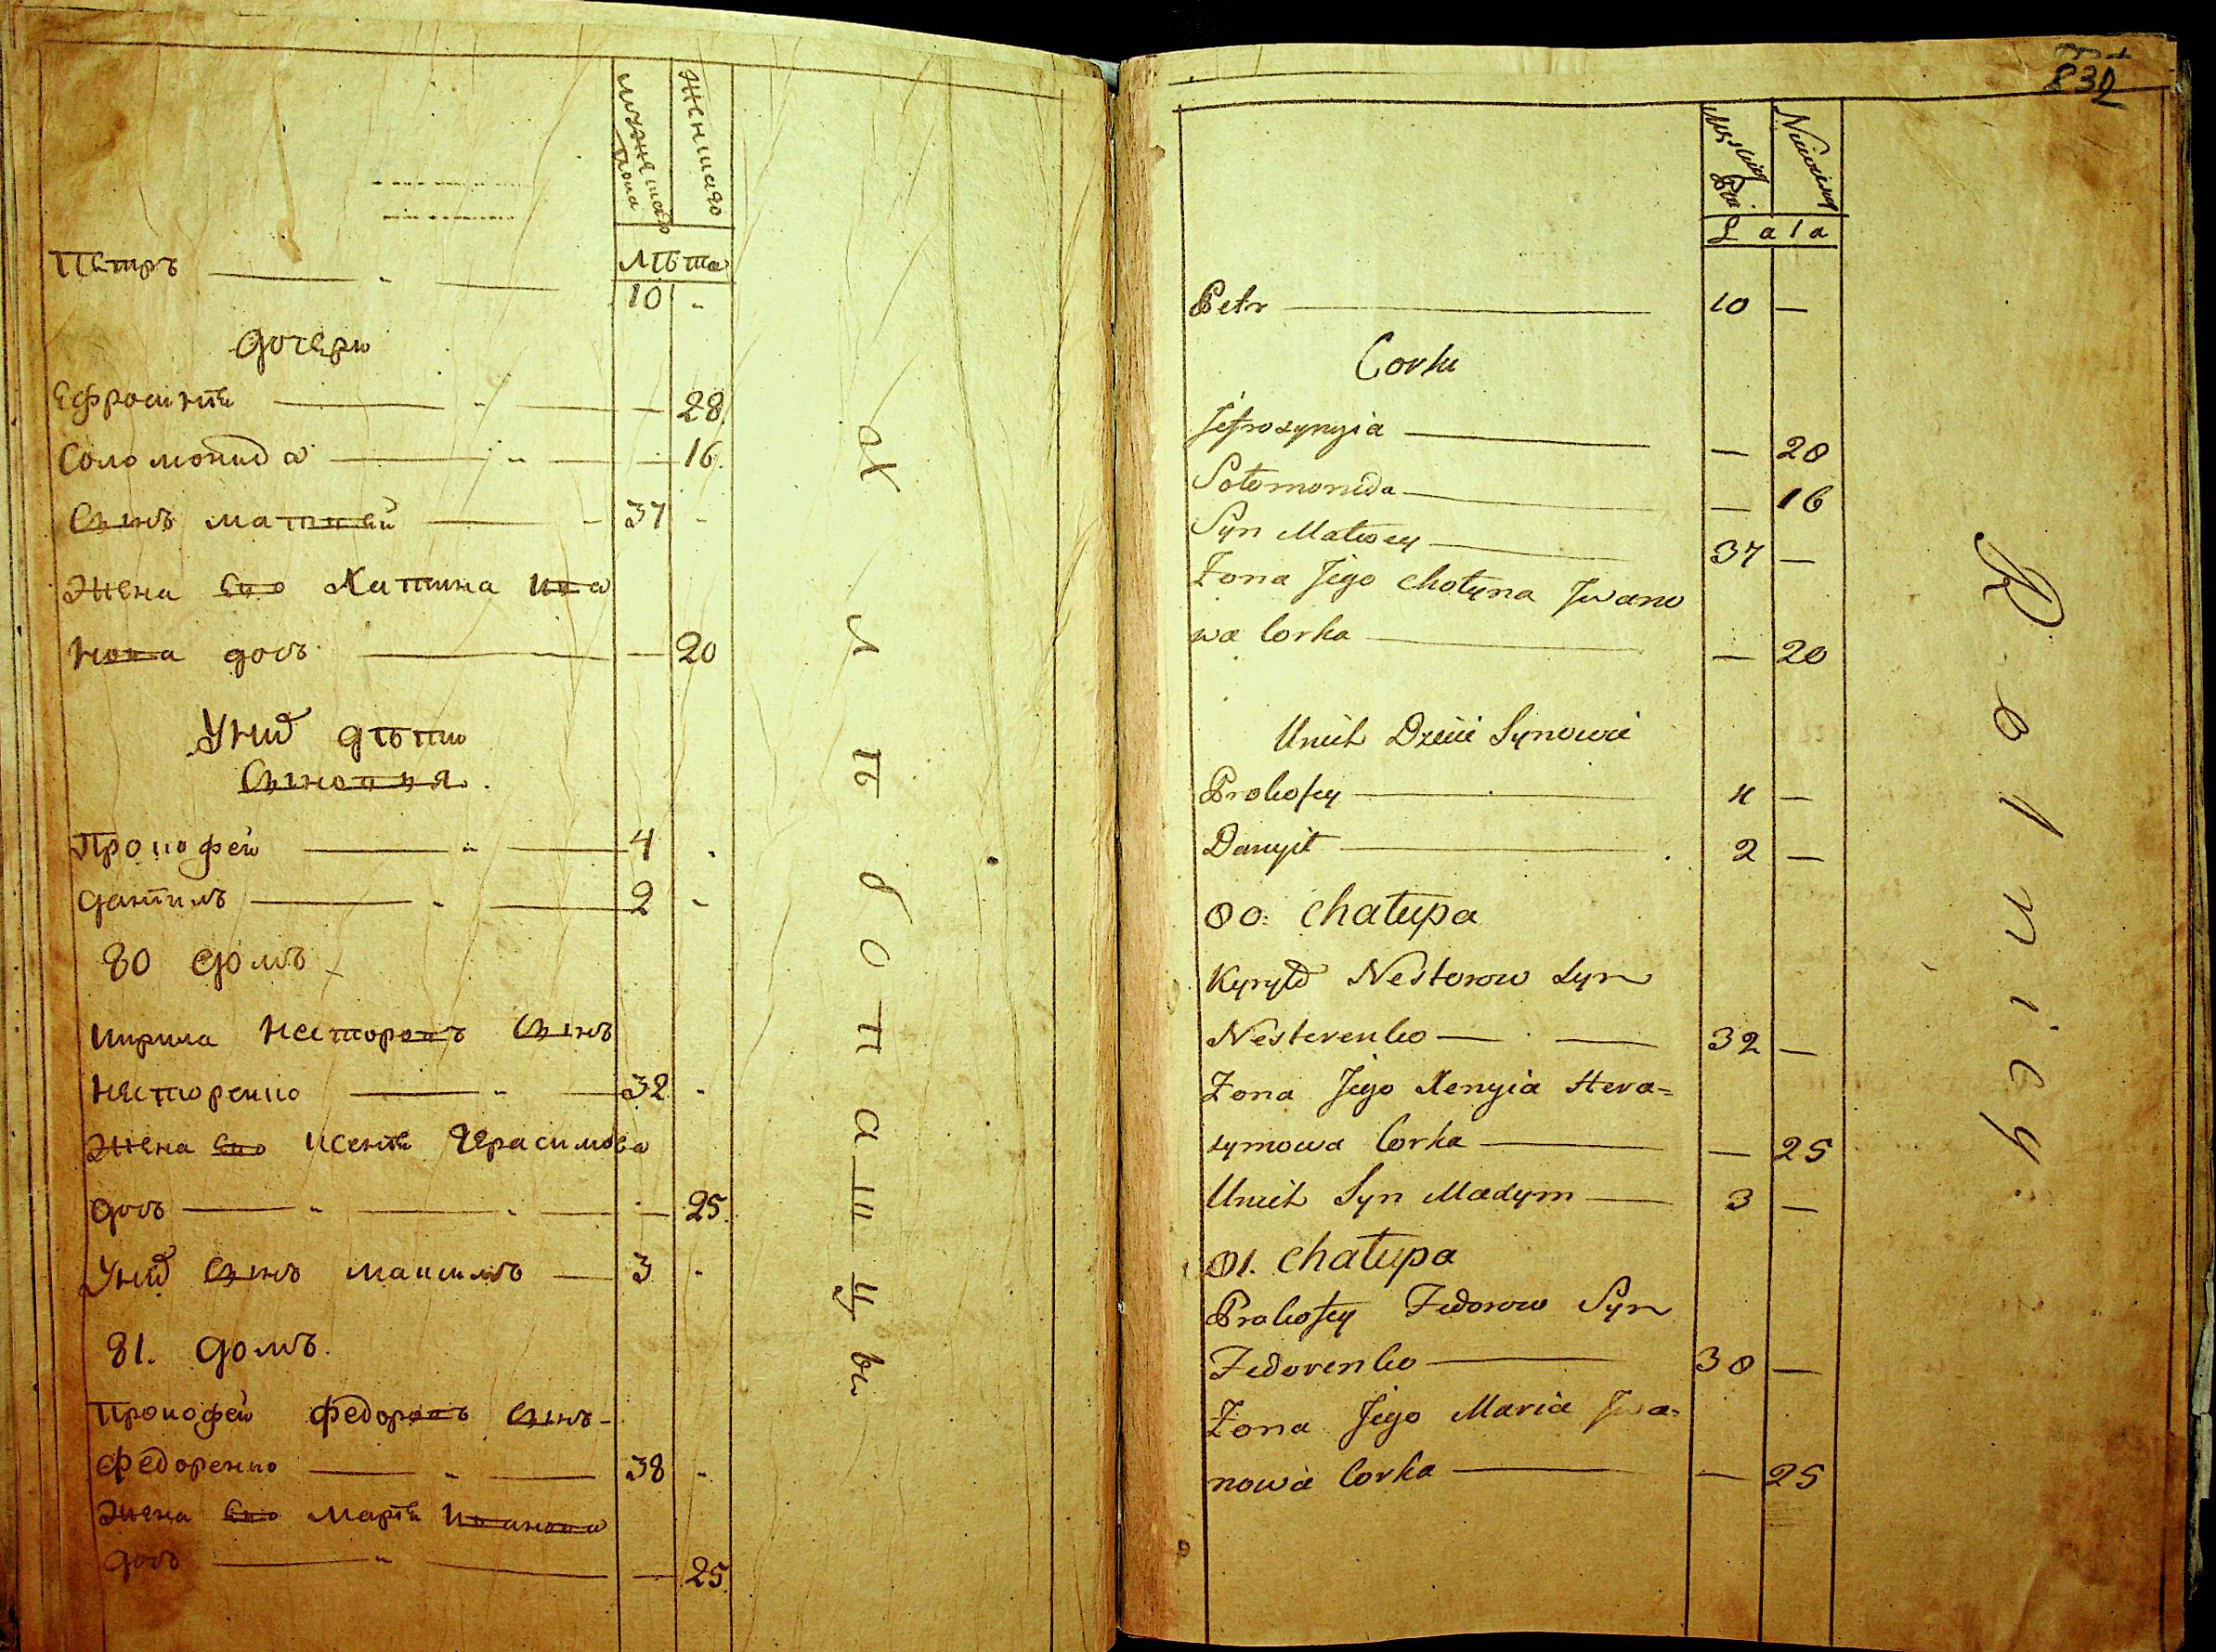 мужеска
пола
женшаго
лѣта
Петръ 10 -
дочери
Ефросинїя — 28.
Соломонида — 16.
Сынъ матвей 37 -
Жена его Хатина Ива
нова дочь — 20
У них дѣти
Сыновья.
Прокофей 4 -
данїилъ 2 -
80 домъ
Кирила Несторовъ Сынъ
Нестеренко 32 -
Жена его Ксенїя Герасимова
дочь — 25.
У них Сынъ максимъ 3 -
81. домъ.
Прокофей Федоровъ Сынъ
Федоренко 38 -
Жена его Марїя Иванова
дочь — 25.
хлѣбопашцы
832
Męskiej
Płci
Niewieściej
Lata
Petr 10 —
Corki
Jefrosynyia — 28
Sołomonida — 16
Syn Matwey 37 —
Żona Jego Chotyna Jwano
wa Corka — 20
Unich Dzieci Synowie
Prokofey 4 —
Danyił 2 —
80: Chałupa
Kyryło Nestorow Syn
Nesterenko 32 —
Żona Jego Xenyia Hera=
symowa Corka — 25
Unich Syn Maxym 3 —
81. Chałupa
Prokofey Fedorow Syn
Fedorenko 38 —
Żona Jego Maria Jwa=
nowa Corka — 25
Rolnicy.